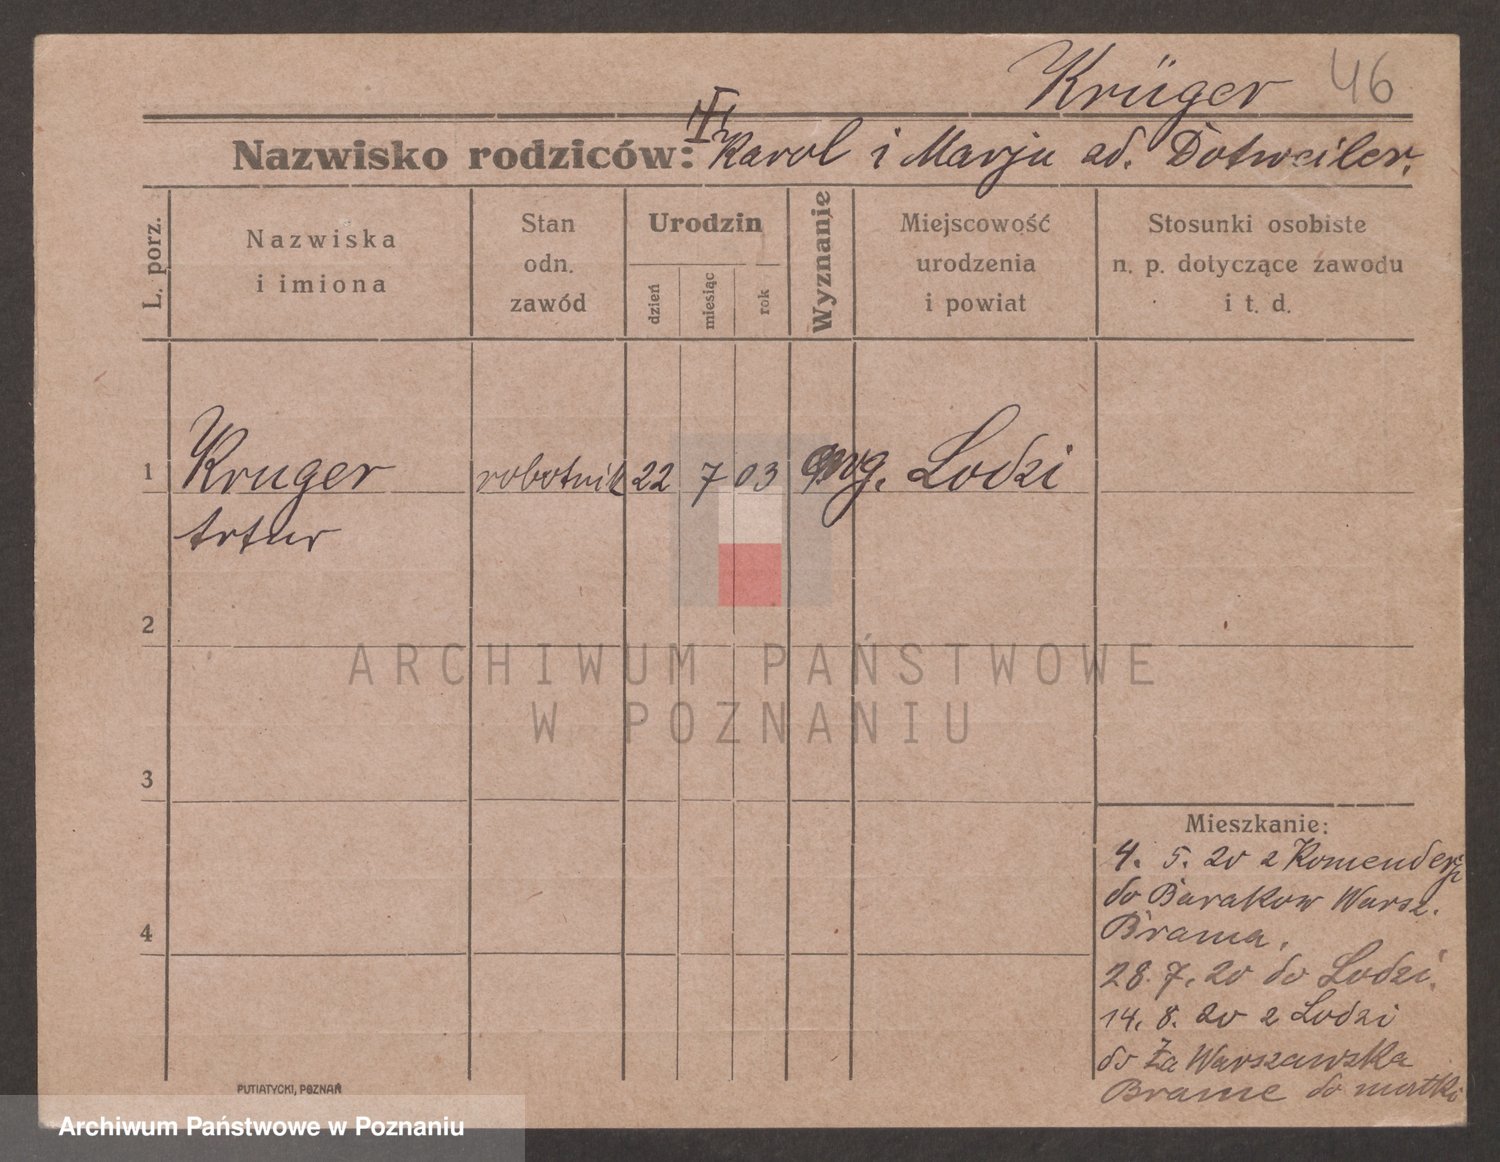 Krüger 46
III
Nazwisko rodziców: Karol i Marja ad. Dotweiler.
L. porz.
Nazwiska
i imiona
Stan
odn.
zawód
Urodzin
dzień
miesiąc
rok
Wyznanie
Miejscowość
urodzenia
i powiat
Stosunki osobiste
n. p. dotyczące zawodu
i t. d.
1 Kruger robotnik 22 7 03 Lodzi
Artur
2
ARCHIWUM PAŃSTWOWE
W POZNANIU
3
Mieszkanie:
4. 5. 20 z
do Barakow Warsz.
4
Brama.
28. 7. 20 do Lodzi.
14. 8. 20 z Lodzi
do Za Warszawska
Brame do matki
PUTIATYCKI, POZNAŃ
Archiwum Państwowe w Poznaniu